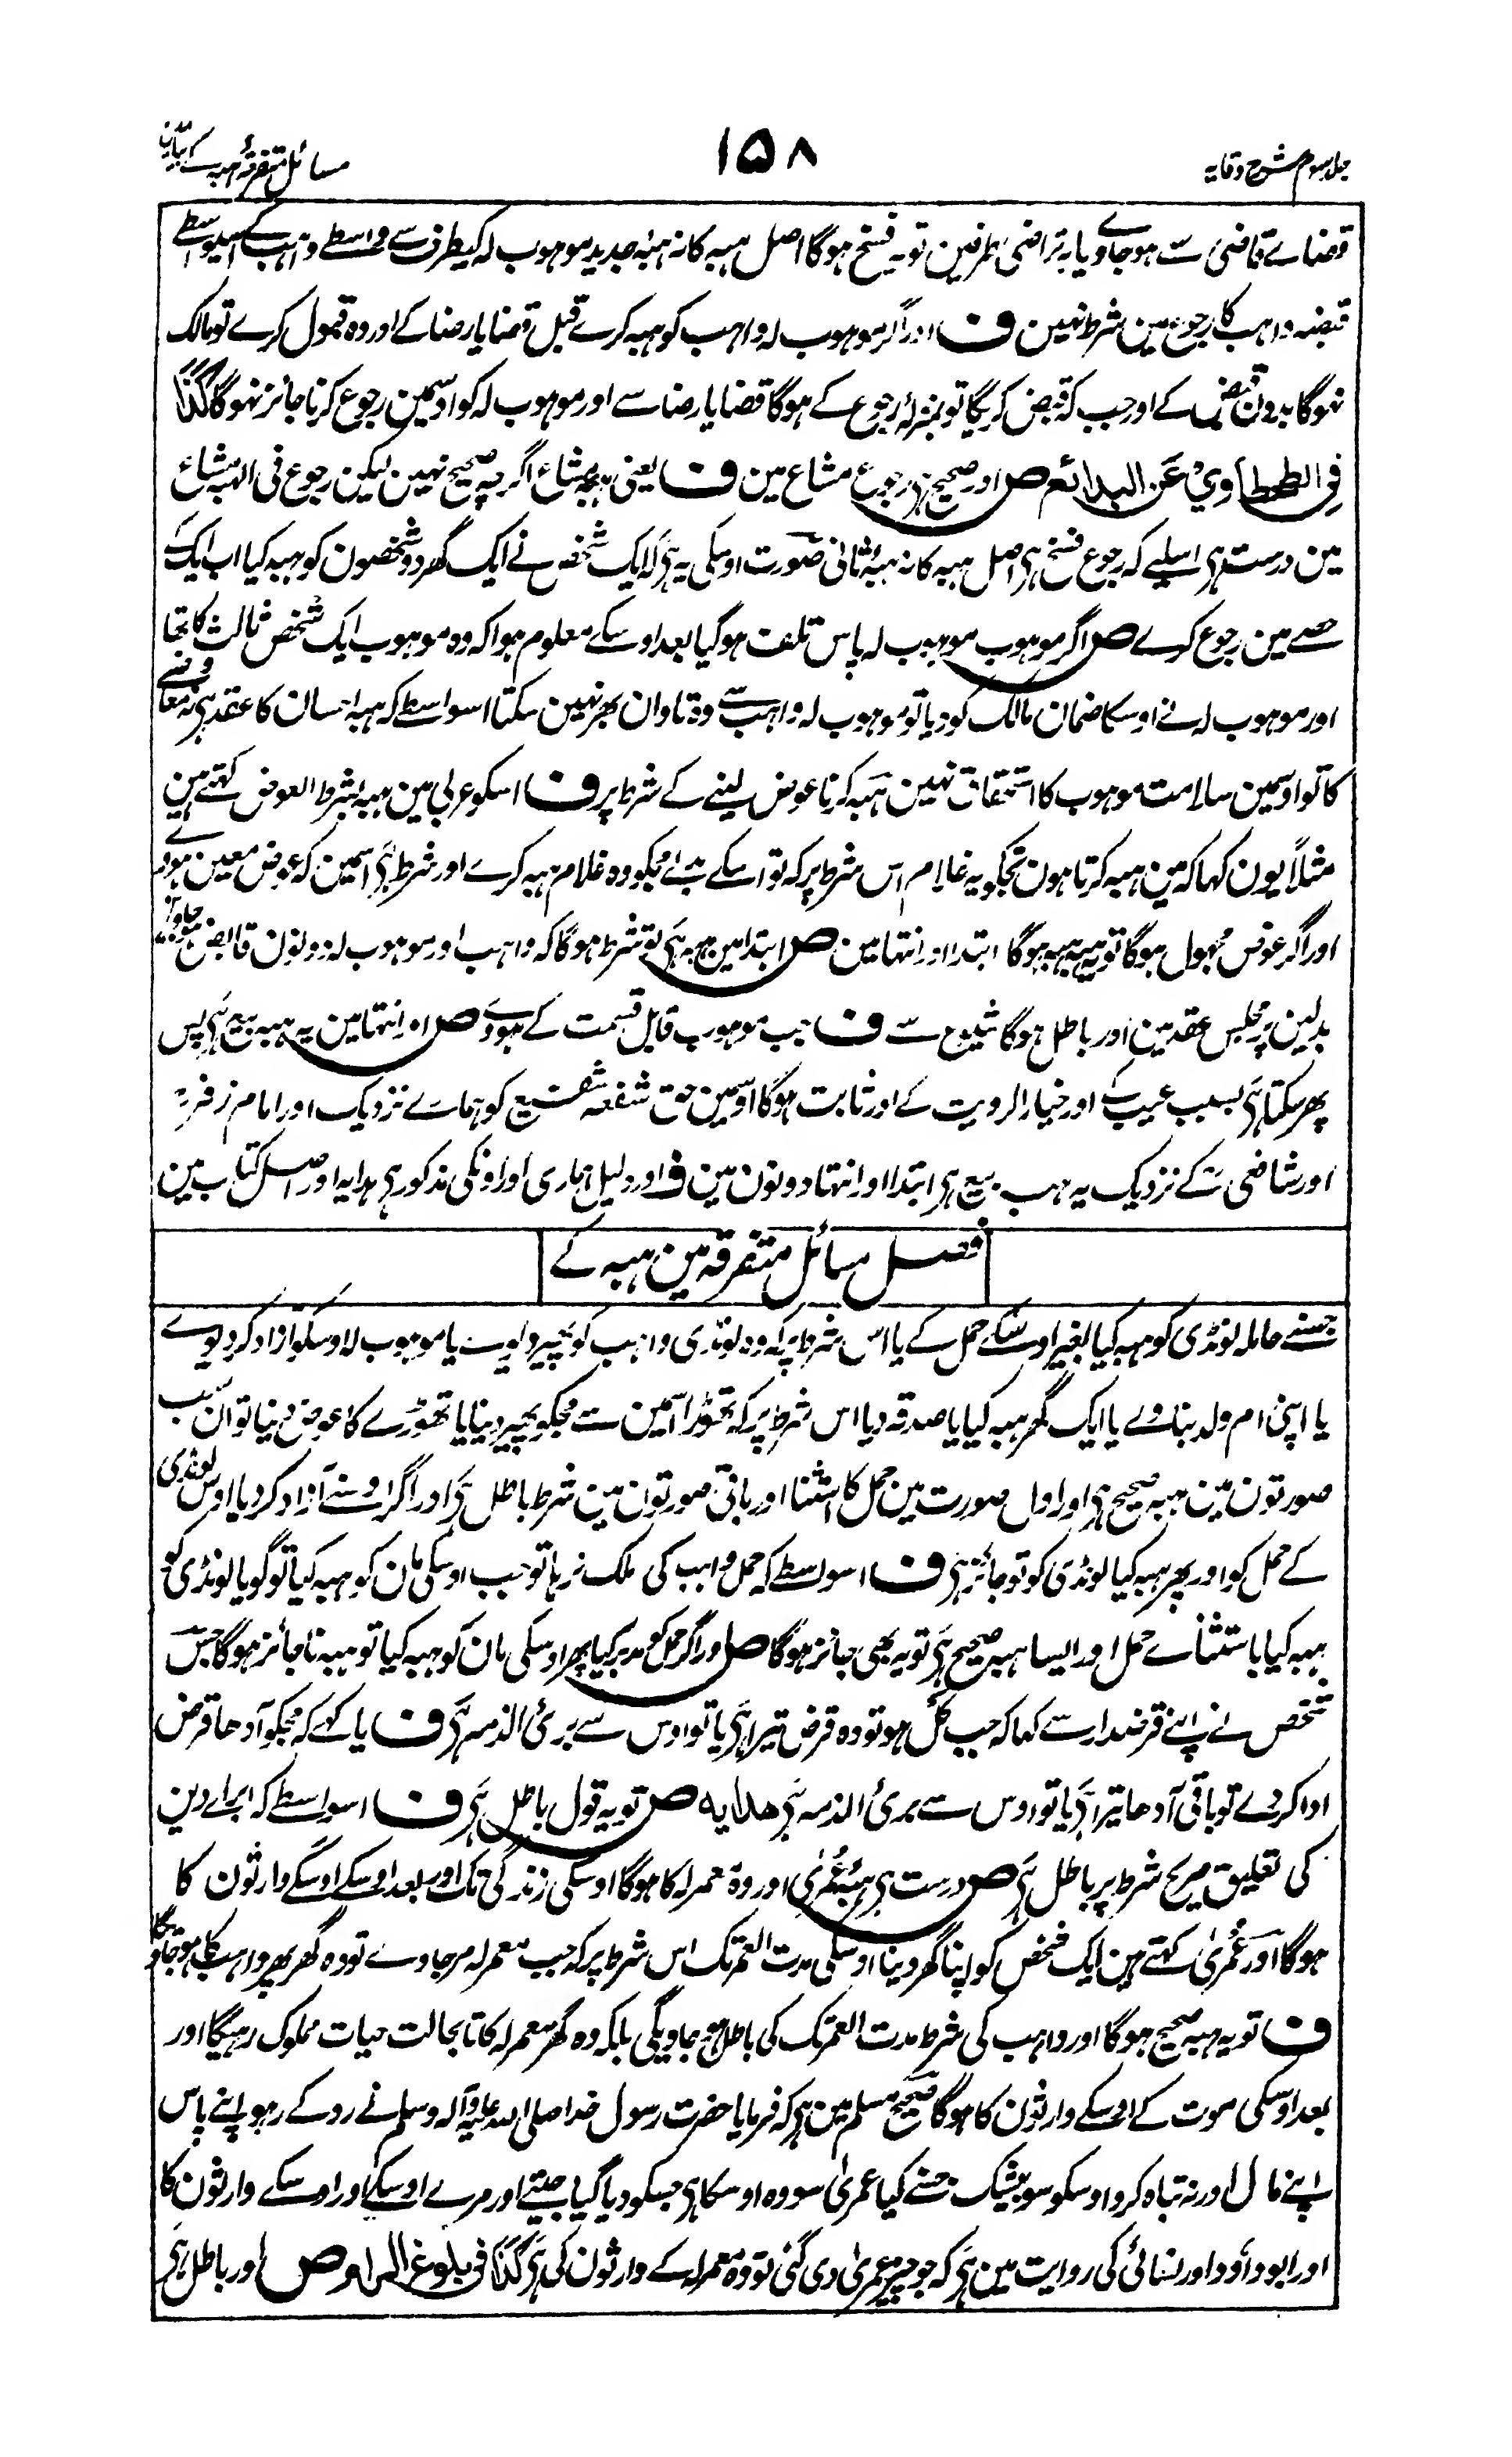 جلد سوم شرح وقایہ
۱۵۸
مسائل متفرقہ ہبہ کے بیان
قضاے قاضی سے ہو جاوے یا بہ تراضی طرفین تو یہ فسخ ہوگا اصل ہبہ کا نہ ہبۂ جدید موہوب لہ کیطرف سے واسطے واہب کے اسیواسطے
قبضہ واہب کا رجوع مین شرط نہین ف اور اگر موہوب لہ واہب کو ہبہ کرے قبل قضا یا رضا کے اور وہ قبول کرے تو مالک
نہوگا بدون قبض کے اور جب کہ قبض کریگا تو بمنزلۂ رجوع کے ہوگا قضا یا رضا سے اور موہوب لہ کو اوسمین رجوع کرنا جائز نہوگا کذا
فی الطحطاوی عن البدائع ص اور صحیح ہی رجوع مشاع مین ف یعنی ہبہ مشاع اگرچہ صحیح نہین لیکن رجوع فی الہبہ مشاع
مین درست ہی اسلیے کہ رجوع فسخ ہی اصل ہبہ کا نہ ہبۂ ثانی صورت اوسکی یہ ہی کہ ایک شخص نے ایک گھر دو شخصون کو ہبہ کیا اب ایک کے
حصے مین رجوع کرے ص اگر موہوب موہوب لہ پاس تلف ہوگیا بعد اوسکے معلوم ہوا کہ وہ موہوب ایک شخص ثالث کا تھا
اور موہوب لہ نے اوسکا ضمان مالک کو دیا تو موہوب لہ واہب سے وہ تاوان پھر نہین سکتا اسواسطے کہ ہبہ احسان کا عقد ہی نہ معاوضے
کا تو اوسمین سلامت موہوب کا استحقاق نہین ہبہ کرنا عوض لینے کے شرط پر ف اسکو عربی مین ہبہ بشرط العوض کہتے ہین
مثلاً یون کہا کہ مین ہبہ کرتا ہون تجکو یہ غلام اس شرط پر کہ تو اسکے بدلے مجکو وہ غلام ہبہ کرے اور شرط ہی اسمین کہ عوض معین ہووے
اور اگر عوض مجہول ہوگا تو یہ ہبہ ہوگا ابتدا اور انتہا مین ص ابتدا مین ہبہ ہی تو شرط ہوگا کہ واہب اور موہوب لہ دونون قابض ہو جاوین
بدلین پر مجلس عقد مین اور باطل ہوگا شیوع سے ف جب موہوب قابل قسمت کے ہووے ص اور انتہا مین یہ ہبہ بیع ہی پس
پھر سکتا ہی بسبب عیب کے اور خیار الرویت کے اور ثابت ہوگا اوسمین حق شفعہ شفیع کو ہمارے نزدیک اور امام زفرؒ
اور شافعیؒ کے نزدیک یہ ہبہ بیع ہی ابتدا اور انتہا دونون مین ف اور دلیل ہماری اور اونکی مذکور ہی ہدایہ اور اصل کتاب مین
فصل مسائل متفرقہ مین ہبہ کے
جسنے حاملہ لونڈی کو ہبہ کیا بغیر اوسکے حمل کے یا اس شرط پر کہ وہ لونڈی واہب کو پھیر دیوے یا موہوب لہ اوسکو آزاد کر دیوے
یا اپنی ام ولد بناوے یا ایک گھر ہبہ کیا یا صدقہ دیا اس شرط پر کہ تھوڑا اسمین سے مجکو پھیر دینا یا تھوڑے کا عوض دینا تو ان سب
صورتون مین ہبہ صحیح ہی اور اول صورت مین حمل کا استثنا اور باقی صورتون مین شرط باطل ہی اور اگر اوسنے آزاد کر دیا اوس لونڈی
کے حمل کو اور پھر ہبہ کیا لونڈی کو تو جائز ہی ف اسواسطے کہ حمل واہب کی ملک نرہا تو جب اوسکی مان کو ہبہ کیا تو گویا لونڈی کو
ہبہ کیا باستثناے حمل اور ایسا ہبہ صحیح ہی تو یہ بھی جائز ہوگا ص اور اگر حمل کو مدبر کیا پھر اوسکی مان کو ہبہ کیا تو ہبہ ناجائز ہوگا جس
شخص نے اپنے قرضدار سے کہا کہ جب کل ہو تو وہ قرض تیرا ہی یا تو اوس سے بری الذمہ ہی ف یا کہے کہ مجکو آدھا قرض
ادا کردے تو باقی آدھا تیرا ہی یا تو اوس سے بری الذمہ ہی ھدایہ ص تو یہ قول باطل ہی ف اسواسطے کہ ابراے دین
کی تعلیق صریح شرط پر باطل ہی ص درست ہی ہبۂ عمریٰ اور وہ معمر لہ کا ہوگا اوسکی زندگی تک اور بعد اوسکے اوسکے وارثون کا
ہوگا اور عمریٰ کہتے ہین ایک شخص کو اپنا گھر دینا اوسکی مدت العمر تک اس شرط پر کہ جب معمر لہ مرجاوے تو وہ گھر پھر واہب کا ہو جاویگا
ف تو یہ ہبہ صحیح ہوگا اور واہب کی شرط مدت العمر تک کی باطل ہو جاویگی بلکہ وہ گھر معمر لہ کا تا بحالت حیات مملوک رہیگا اور
بعد اوسکی موت کے اوسکے وارثون کا ہوگا صحیح مسلم مین ہی کہ فرمایا حضرت رسول خدا صلی اللہ علیہ وآلہ وسلم نے روکے رہو اپنے پاس
اپنے مال اور نہ تباہ کرو اوسکو سو بیشک جسنے کیا عمریٰ سو وہ اوسکا ہی جسکو دیا گیا جیتے اور مرے اوسکے اور اوسکے وارثون کا
اور ابو داؤد اور نسائی کی روایت مین ہی کہ جو چیز عمریٰ دی گئی تو وہ معمر لہ کے وارثون کی ہی کذا فی بلوغ المرام ص اور باطل ہی